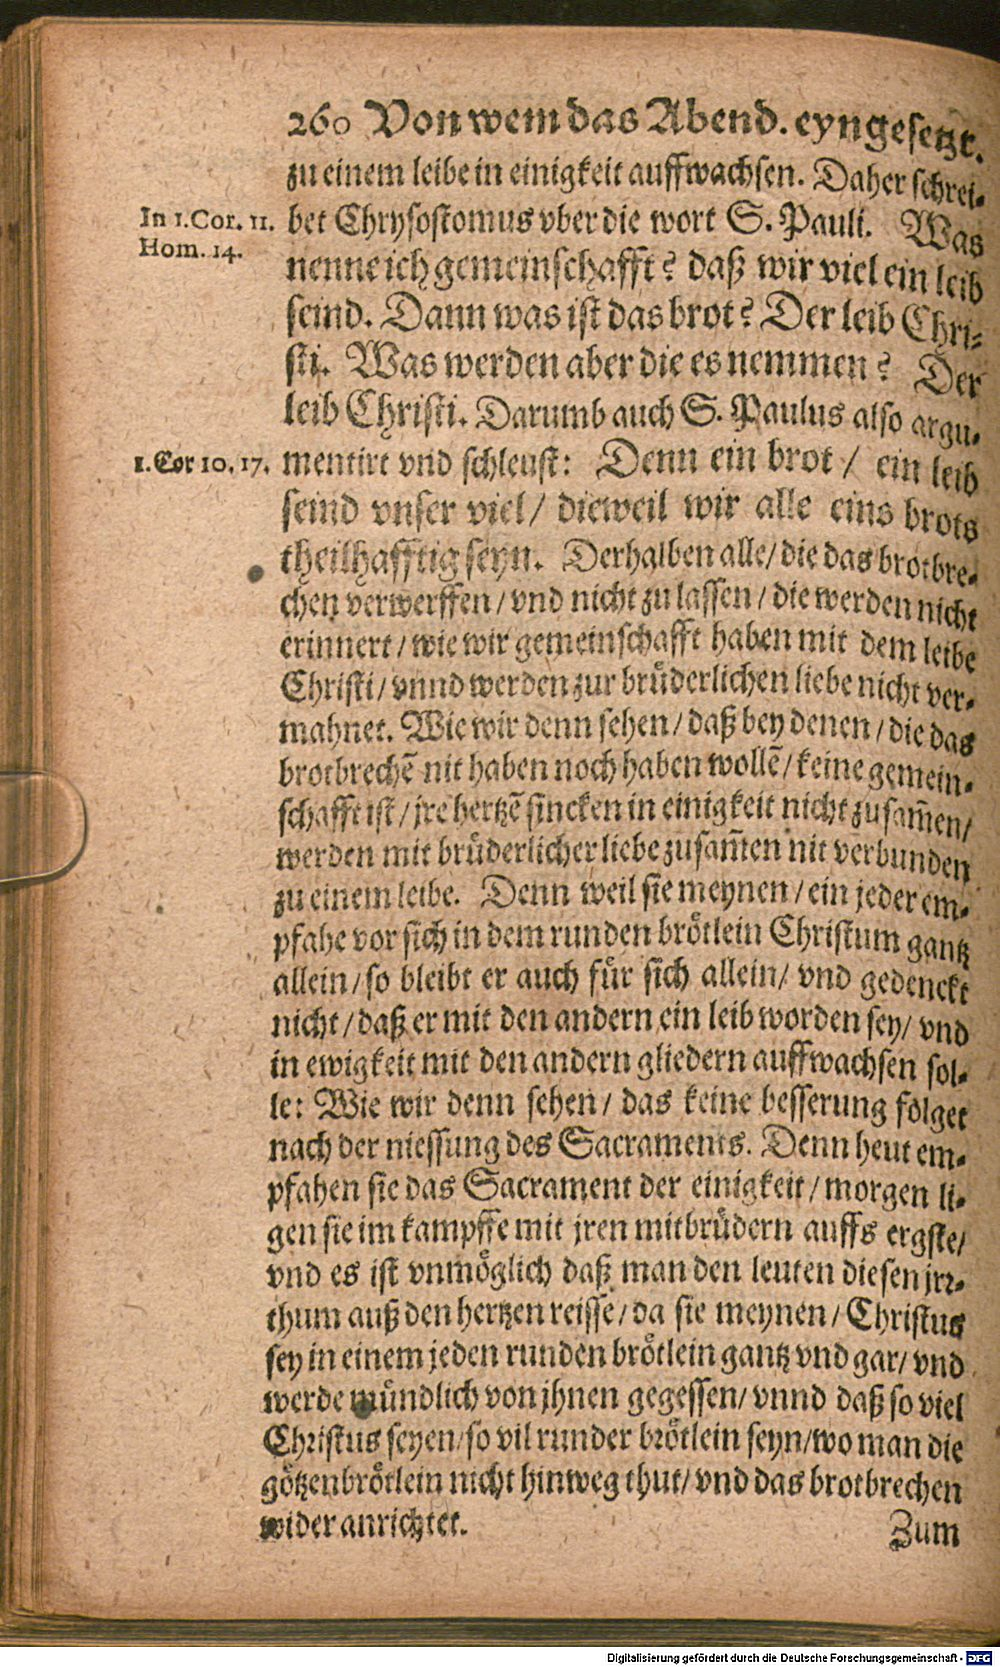 260 Von wem das Abend. eyngesetzt.
zu einem leibe in einigkeit auffwachsen. Daher schrei-
In 1. Cor. 11. bet Chrysostomus vber die wort S. Pauli. Was
Hom. 14. nenne ich gemeinschafft? daß wir viel ein leib
seind. Dann was ist das brot? Der leib Chri-
sti. Was werden aber die es nemmen? Der
leib Christi. Darumb auch S. Paulus also argu-
1. Cor 10. 17. mentirt vnd schleust: Denn ein brot / ein leib
seind vnser viel / dieweil wir alle eins brots
theilhafftig seyn. Derhalben alle / die das brotbre-
chen verwerffen / vnd nicht zu lassen / die werden nicht
erinnert / wie wir gemeinschafft haben mit dem leibe
Christi / vnnd werden zur brüderlichen liebe nicht ver-
mahnet. Wie wir denn sehen / daß bey denen / die das
brotbrechē nit haben noch haben wollē / keine gemein-
schafft ist / jre hertzē sincken in einigkeit nicht zusam̄en /
werden mit brüderlicher liebe zusam̄en nit verbunden
zu einem leibe. Denn weil sie meynen / ein jeder em-
pfahe vor sich in dem runden brötlein Christum gantz
allein / so bleibt er auch für sich allein / vnd gedenckt
nicht / daß er mit den andern ein leib worden sey / vnd
in ewigkeit mit den andern gliedern auffwachsen sol-
le: Wie wir denn sehen / das keine besserung folget
nach der niessung des Sacraments. Denn heut em-
pfahen sie das Sacrament der einigkeit / morgen li-
gen sie im kampffe mit jren mitbrüdern auffs ergste /
vnd es ist vnmöglich daß man den leuten diesen jrr-
thum auß den hertzen reisse / da sie meynen / Christus
sey in einem jeden runden brötlein gantz vnd gar / vnd
werde mündlich von jhnen gegessen / vnnd daß so viel
Christus seyen / so vil runder brötlein seyn / wo man die
götzenbrötlein nicht hinweg thut / vnd das brotbrechen
wider anrichtet.
Zum
Digitalisierung gefördert durch die Deutsche Forschungsgemeinschaft - DFG